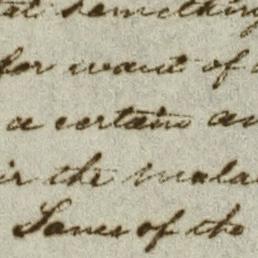 something
for want of
a certain an
the mula
Lanes of the